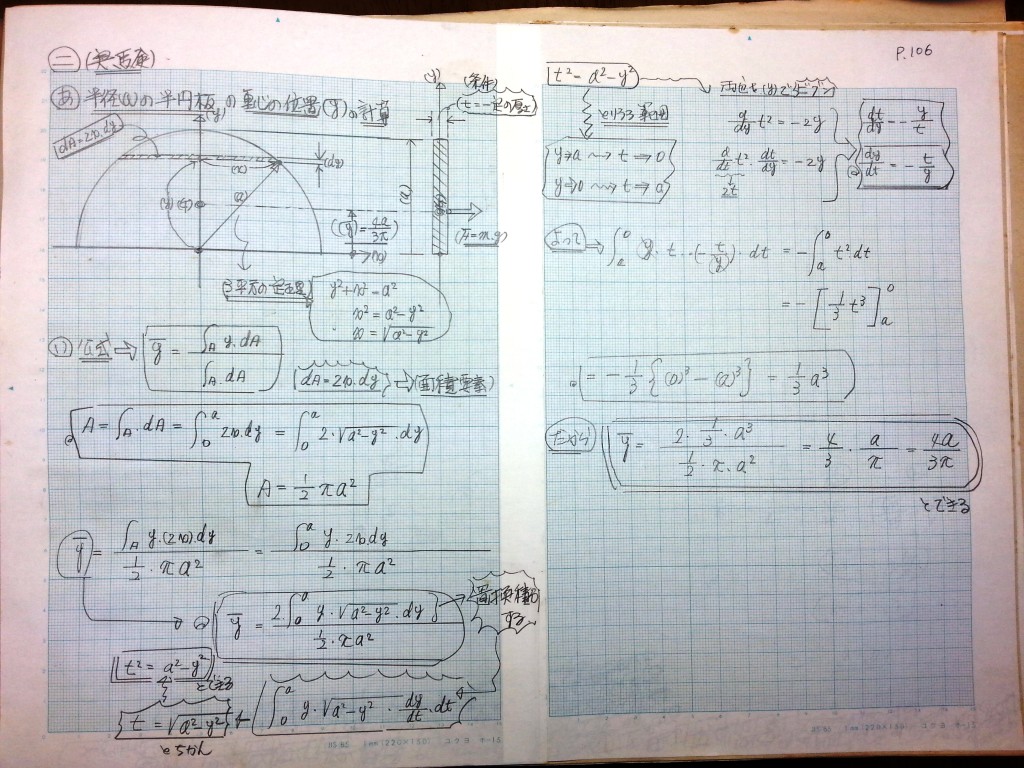 P.106
半径(a)の半円板の重心の位置(ȳ)の計算
dA=2x.dy
(y)
(dy)
(x)
(a)
(ȳ)=4a/3π
(a)
(y)
(条件)
(t=一定の厚さ)
(A=m.g)
3平方の定理
y²+x²=a²
x²=a²-y²
x=√a²-y²
(1) 公式⇒ ȳ = ∫A y.dA / ∫A.dA
dA=2x.dy ⇒ (面積要素)
A=∫A.dA=∫₀ᵃ2x.dy=∫₀ᵃ2.√a²-y².dy
A=1/2πa²
ȳ= ∫A y.(2x)dy / 1/2・πa² = ∫₀ᵃ y.2x.dy / 1/2・πa²
ȳ = 2.∫₀ᵃ y・√a²-y².dy / 1/2・πa²
置換積分する
t²=a²-y²
とできる
t=√a²-y²
とちがん
∫₀ᵃ y・√a²-y²・dy/dt・dt
t²=a²-y²
両辺を(y)でビブン
とりうる範囲
y→a ⇝ t→0
y→0 ⇝ t→a
d/dy t²=-2y
d/dt t²・dt/dy=-2y
2t
dt/dy=-y/t
dy/dt=-t/y
よって→ ∫ₐ⁰ y・t・(-t/y)・dt = -∫ₐ⁰t².dt
=-[1/3 t³]ₐ⁰
=-1/3{(0)³-(a)³}=1/3a³
だから
ȳ= 2.1/3.a³ / 1/2・π.a² = 4/3・a/π = 4a/3π
とできる
1mm(220×150) コクヨ
1mm(220×150) コクヨ